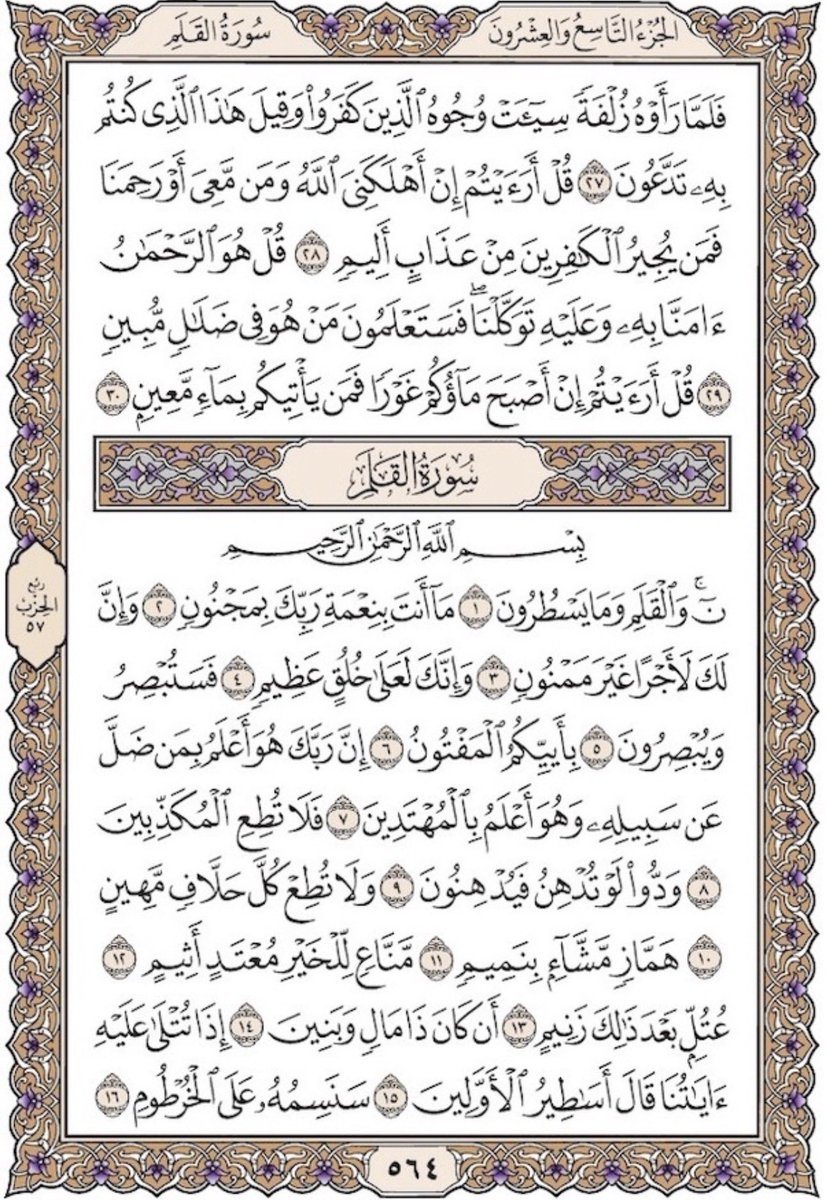 الجُزْءُ التَّاسِعُ وَالعِشْرُونَ
سُورَةُ القَلَمِ
فَلَمَّا رَأَوْهُ زُلْفَةً سِيٓـَٔتْ وُجُوهُ ٱلَّذِينَ كَفَرُوا۟ وَقِيلَ هَٰذَا ٱلَّذِى كُنتُم
بِهِۦ تَدَّعُونَ ٢٧ قُلْ أَرَءَيْتُمْ إِنْ أَهْلَكَنِىَ ٱللَّهُ وَمَن مَّعِىَ أَوْ رَحِمَنَا
فَمَن يُجِيرُ ٱلْكَٰفِرِينَ مِنْ عَذَابٍ أَلِيمٍ ٢٨ قُلْ هُوَ ٱلرَّحْمَٰنُ
ءَامَنَّا بِهِۦ وَعَلَيْهِ تَوَكَّلْنَا ۖ فَسَتَعْلَمُونَ مَنْ هُوَ فِى ضَلَٰلٍ مُّبِينٍ
٢٩ قُلْ أَرَءَيْتُمْ إِنْ أَصْبَحَ مَآؤُكُمْ غَوْرًا فَمَن يَأْتِيكُم بِمَآءٍ مَّعِينٍ ٣٠
سُورَةُ القَلَمِ
بِسْمِ ٱللَّهِ ٱلرَّحْمَٰنِ ٱلرَّحِيمِ
نٓ ۚ وَٱلْقَلَمِ وَمَا يَسْطُرُونَ ١ مَآ أَنتَ بِنِعْمَةِ رَبِّكَ بِمَجْنُونٍ ٢ وَإِنَّ
لَكَ لَأَجْرًا غَيْرَ مَمْنُونٍ ٣ وَإِنَّكَ لَعَلَىٰ خُلُقٍ عَظِيمٍ ٤ فَسَتُبْصِرُ
وَيُبْصِرُونَ ٥ بِأَييِّكُمُ ٱلْمَفْتُونُ ٦ إِنَّ رَبَّكَ هُوَ أَعْلَمُ بِمَن ضَلَّ
عَن سَبِيلِهِۦ وَهُوَ أَعْلَمُ بِٱلْمُهْتَدِينَ ٧ فَلَا تُطِعِ ٱلْمُكَذِّبِينَ
٨ وَدُّوا۟ لَوْ تُدْهِنُ فَيُدْهِنُونَ ٩ وَلَا تُطِعْ كُلَّ حَلَّافٍ مَّهِينٍ
١٠ هَمَّازٍ مَّشَّآءٍۭ بِنَمِيمٍ ١١ مَّنَّاعٍ لِّلْخَيْرِ مُعْتَدٍ أَثِيمٍ ١٢
عُتُلٍّۭ بَعْدَ ذَٰلِكَ زَنِيمٍ ١٣ أَن كَانَ ذَا مَالٍ وَبَنِينَ ١٤ إِذَا تُتْلَىٰ عَلَيْهِ
ءَايَٰتُنَا قَالَ أَسَٰطِيرُ ٱلْأَوَّلِينَ ١٥ سَنَسِمُهُۥ عَلَى ٱلْخُرْطُومِ ١٦
رُبْع
الحِزْب
٥٧
٥٦٤